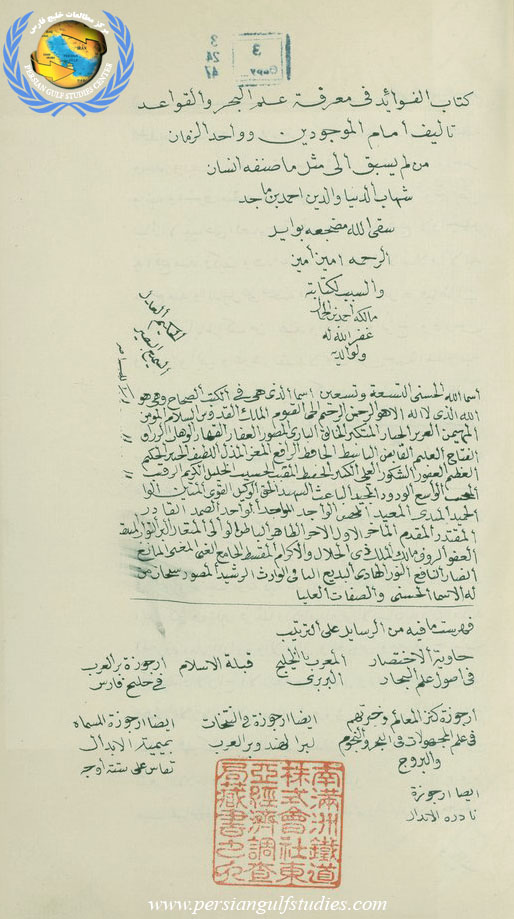 مرکز مطالعات خلیج فارس
IRAN
PERSIAN GULF STUDIES CENTER
3
24
47
3
Copy
كتاب الفوائد فى معرفة علم البحر والقواعد
تاليف امام الموجودين وواحد الزمان
من لم يسبق الى مثل ما صنفه انسان
شهاب الدنيا والدين احمد بن ماجد
سقى الله مضجعه بوابد
الرحمه امين امين
والسبب لكتابته
مالكه احمد بن
غفر الله له
ولوالديه
اسما الله الحسنى التسعة وتسعين اسما الذى هى فى الكتب الصحاح وهى هو
الله الذى لا اله الا هو الرحمن الرحيم الحى القيوم الملك القدوس السلام المومن
المهيمن العزيز الجبار المتكبر الخالق البارى المصور الغفار القهار الوهاب الرزو
الفتاح العليم القابض الباسط الخافظ الرافع المعز المذل اللطيف الخبير الحكيم
العظيم الغفور الشكور العلى الكبير الحفيظ المقيت الحسيب الجليل الكريم الرقيب
المجيب الواسع الودود المجيد الباعث الشهيد الحق الوكيل القوى المتين الوا
الحميد المبدى المعيد المحصى الواجد الماجد الواحد الصمد القادر
المقتدر المقدم الماخر الاول الاخر الظاهر الباطن الوالى المتعال البر التواب
العفو الروف مالك الملك ذى الجلال والاكرام المقسط الجامع الغنى المغنى المانع
الضار النافع النور الهادى البديع الباقى الوارث الرشيد الصبور سبحان من
له الاسما الحسنى والصفات العليا
فهرست ما فيه من الرسايل على الترتيب
حاوية الاختصار فى اصول علم البحار
المعرب بالخليج البربرى
قبلة الاسلام
ارجوزة بر العرب فى خليج فارس
ارجوزة كنز المعالمه وخبرتهم فى علم المجهولات فى البحر والنجوم والبروج
ايضا ارجوزة فى النتخات لبر الهند وبر العرب
ايضا ارجوزة المسماه بميمية الابدال تقاس على ستة اوجه
ايضا ارجوزة نادرة الابدال
南滿洲鐵道
株式會社東
亞經濟調查
局藏書之印
www.persiangulfstudies.com